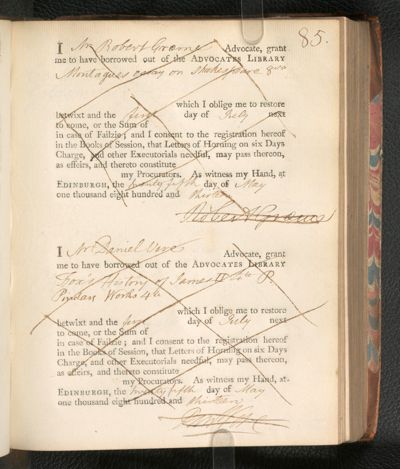 85.
I Mr Robert Græme Advocate, grant
me to have borrowed out of the ADVOCATES LIBRARY
Montagues essay on Shakespeare 8vo
which I oblige me to restore
betwixt and the first day of July next
to come, or the Sum of
in case of Failzie; and I consent to the registration hereof
in the Books of Session, that Letters of Horning on six Days
Charge, and other Executorials needful, may pass thereon,
as effeirs, and thereto constitute
my Procurators. As witness my Hand, at
EDINBURGH, the twenty fifth day of May
one thousand eight hundred and thirteen
Robert Græme
I Mr Daniel Vere Advocate, grant
me to have borrowed out of the ADVOCATES LIBRARY
Fox's History of James II 4to P.
Works 4to
which I oblige me to restore
betwixt and the first day of July next
to come, or the Sum of
in case of Failzie; and I consent to the registration hereof
in the Books of Session, that Letters of Horning on six Days
Charge, and other Executorials needful, may pass thereon,
as effeirs, and thereto constitute
my Procurators. As witness my Hand, at
EDINBURGH, the twenty fifth day of May
one thousand eight hundred and thirteen